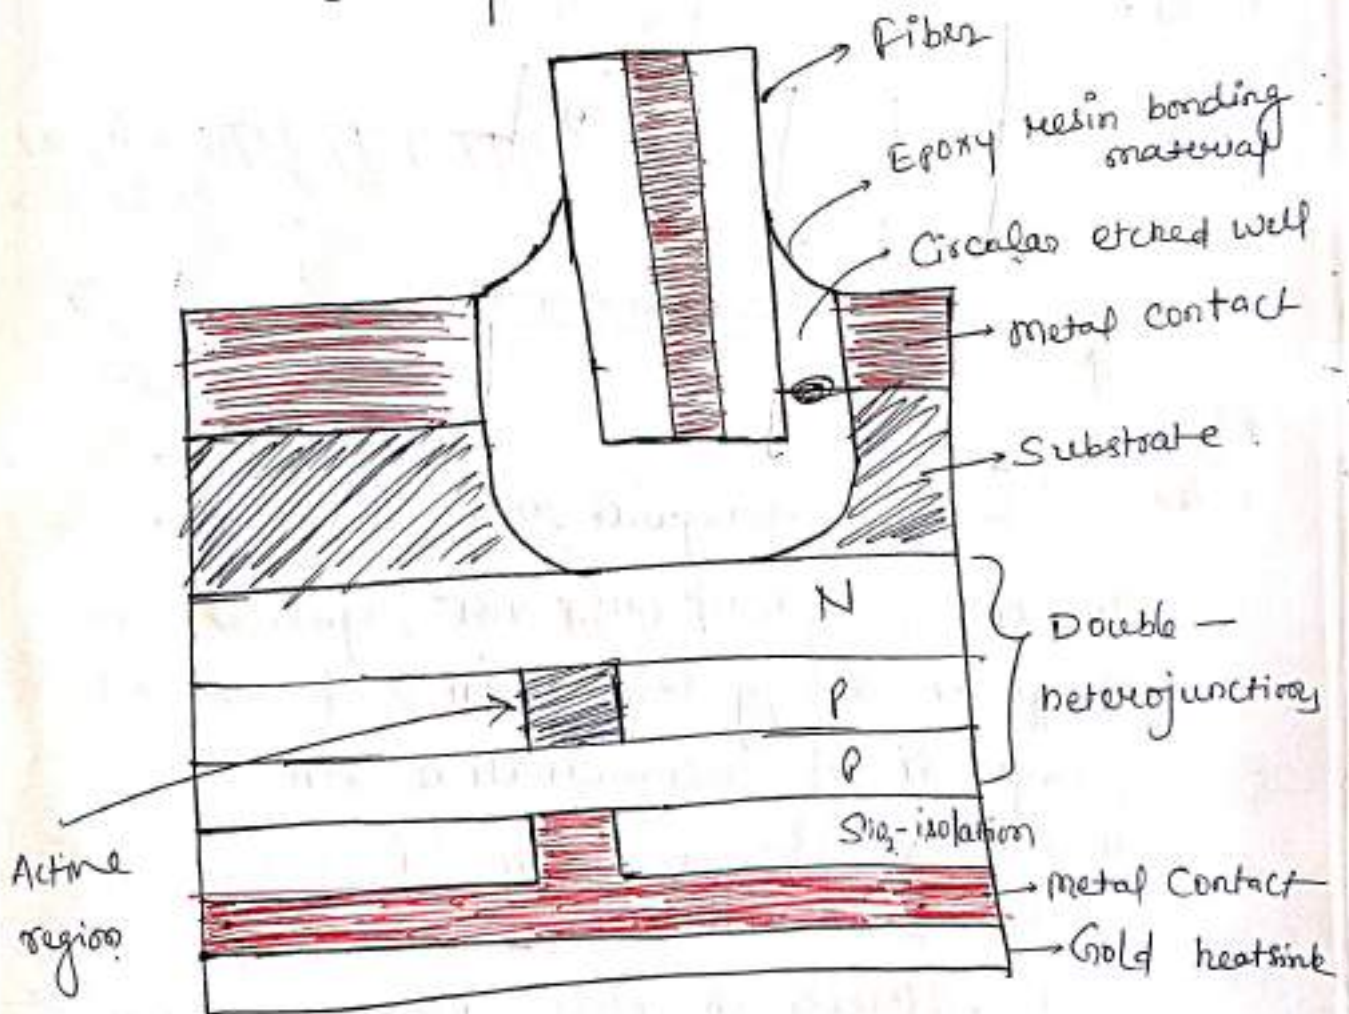 Fiber
Epoxy resin bonding
material
Circular etched well
Metal contact
Substrate
N
Double -
heterojunction
P
P
SiO₂-isolation
Active
region
Metal Contact
Gold heatsink